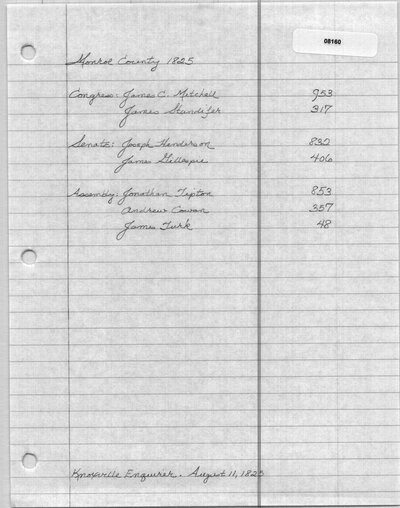 08160
Monroe County 1825
Congress: James C. Mitchell 953
James Standifer 317
Senate: Joseph Henderson 832
James Gillespie 406
Assembly: Jonathan Tipton 853
Andrew Cowan 357
James Turk 48
Knoxville Enquirer. August 11, 1825